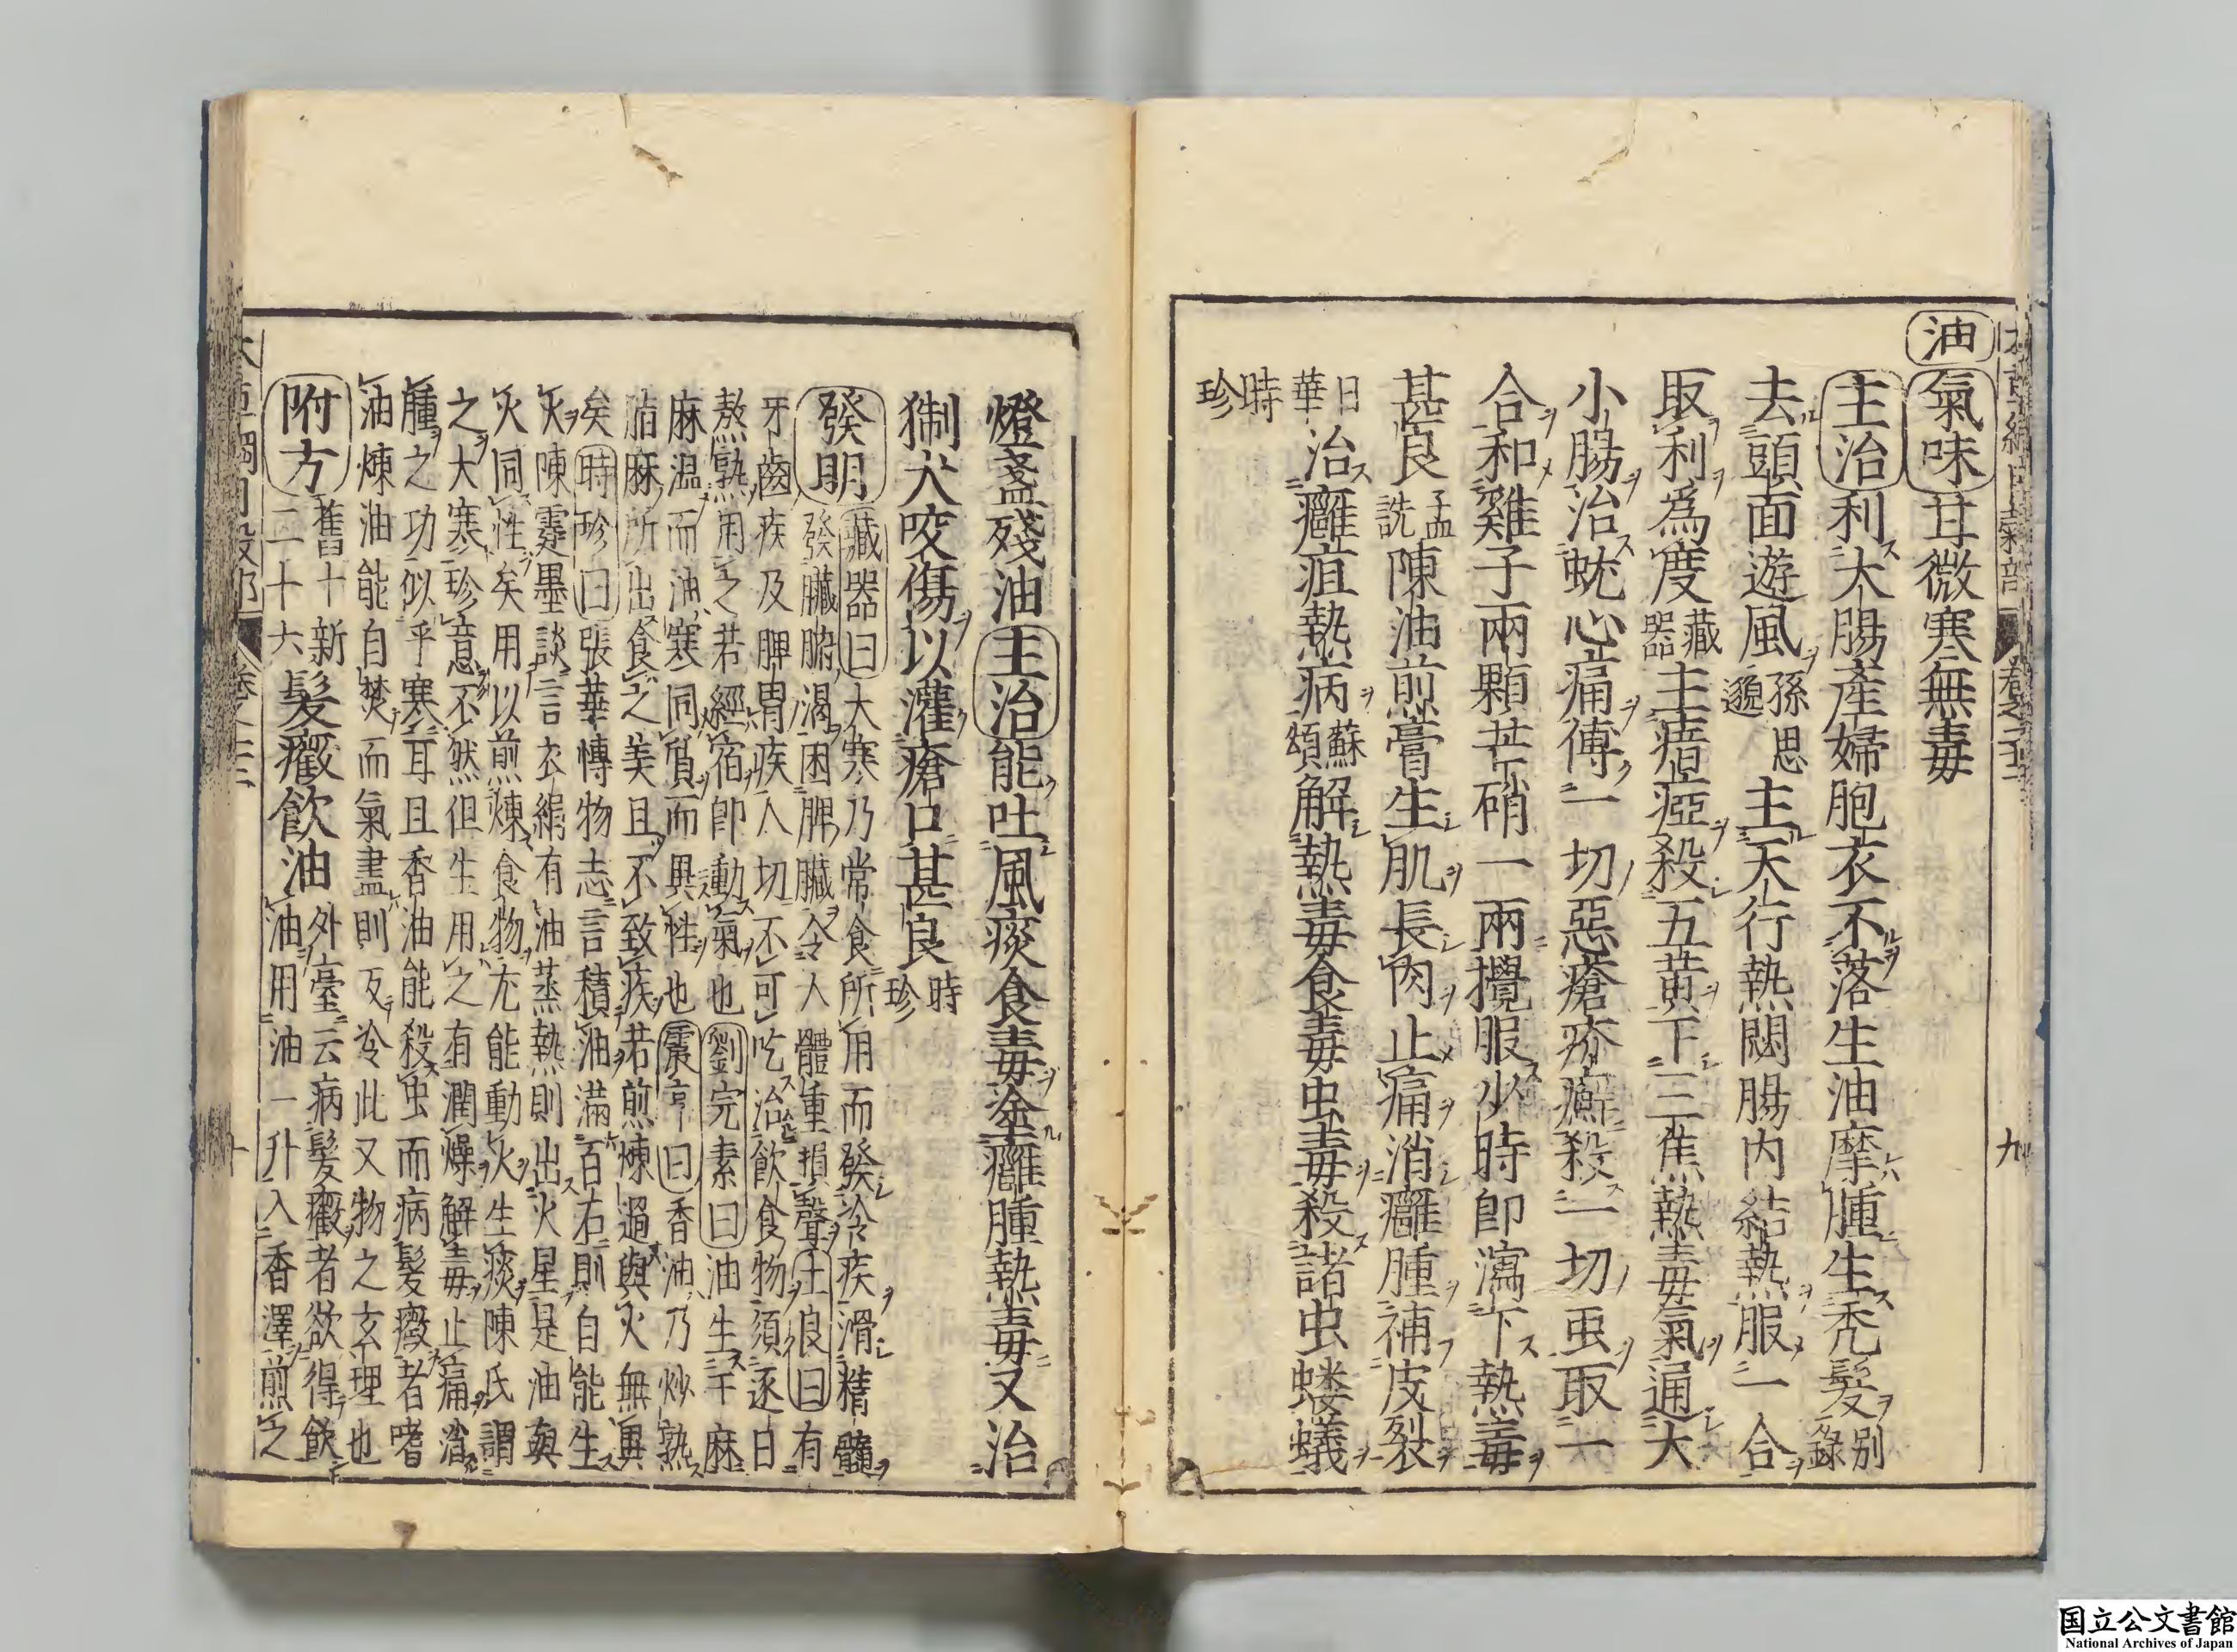 本草綱目穀部 卷之二十二 九
油 氣味甘微寒無毒
主治利大腸產婦胞衣不落生油摩腫生禿髮別錄
去頭面遊風孫思邈主天行熱閟腸內結熱服一合
取利爲度藏器主瘖瘂殺五黃下三焦熱毒氣通大
小腸治蚘心痛傅一切惡瘡疥癬殺一切虫取一
合和雞子兩顆芒硝一兩攪服少時即瀉下熱毒
甚良孟詵陳油煎膏生肌長肉止痛消癰腫補皮裂
日華治癰疽熱病蘇頌解熱毒食毒虫毒殺諸虫螻蟻
時珍
燈盞殘油主治能吐風痰食毒塗癰腫熱毒又治
猘犬咬傷以灌瘡口甚良時珍
發明藏器曰大寒乃常食所用而發冷疾滑精髓
發臟腑渴困脾臟令人體重損聲士良曰有
牙齒疾及脾胃疾人切不可吃治飲食物須逐日
熬熟用之若經宿即動氣也劉完素曰油生于麻
麻温而油寒同質而異性也震亨曰香油乃炒熟
脂麻所出食之美且不致疾若煎煉過與火無異
矣時珍曰張華博物志言積油滿百石則自能生
火陳霆墨談言衣絹有油蒸熱則出火星是油與
火同性矣用以煎煉食物尢能動火生痰陳氏謂
之大寒珍意不然但生用之有潤燥解毒止痛消
腫之功似乎寒耳且香油能殺虫而病髮癥者嗜
油煉油能自焚而氣盡則反冷此又物之玄理也
附方舊十新二十六髮癥飲油外臺云病髮癥者欲得飲
油用油一升入香澤煎之
本草綱目穀部 卷之二十二 十
国立公文書館
National Archives of Japan